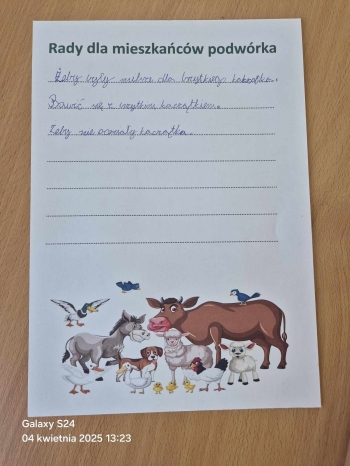 Rady dla mieszkańców podwórka
Żeby były milsze dla brzydkiego kaczątka.
Bawić się z brzytkim kaczątkiem.
Żeby nie oceniały kaczątka.
Galaxy S24
04 kwietnia 2025 13:23